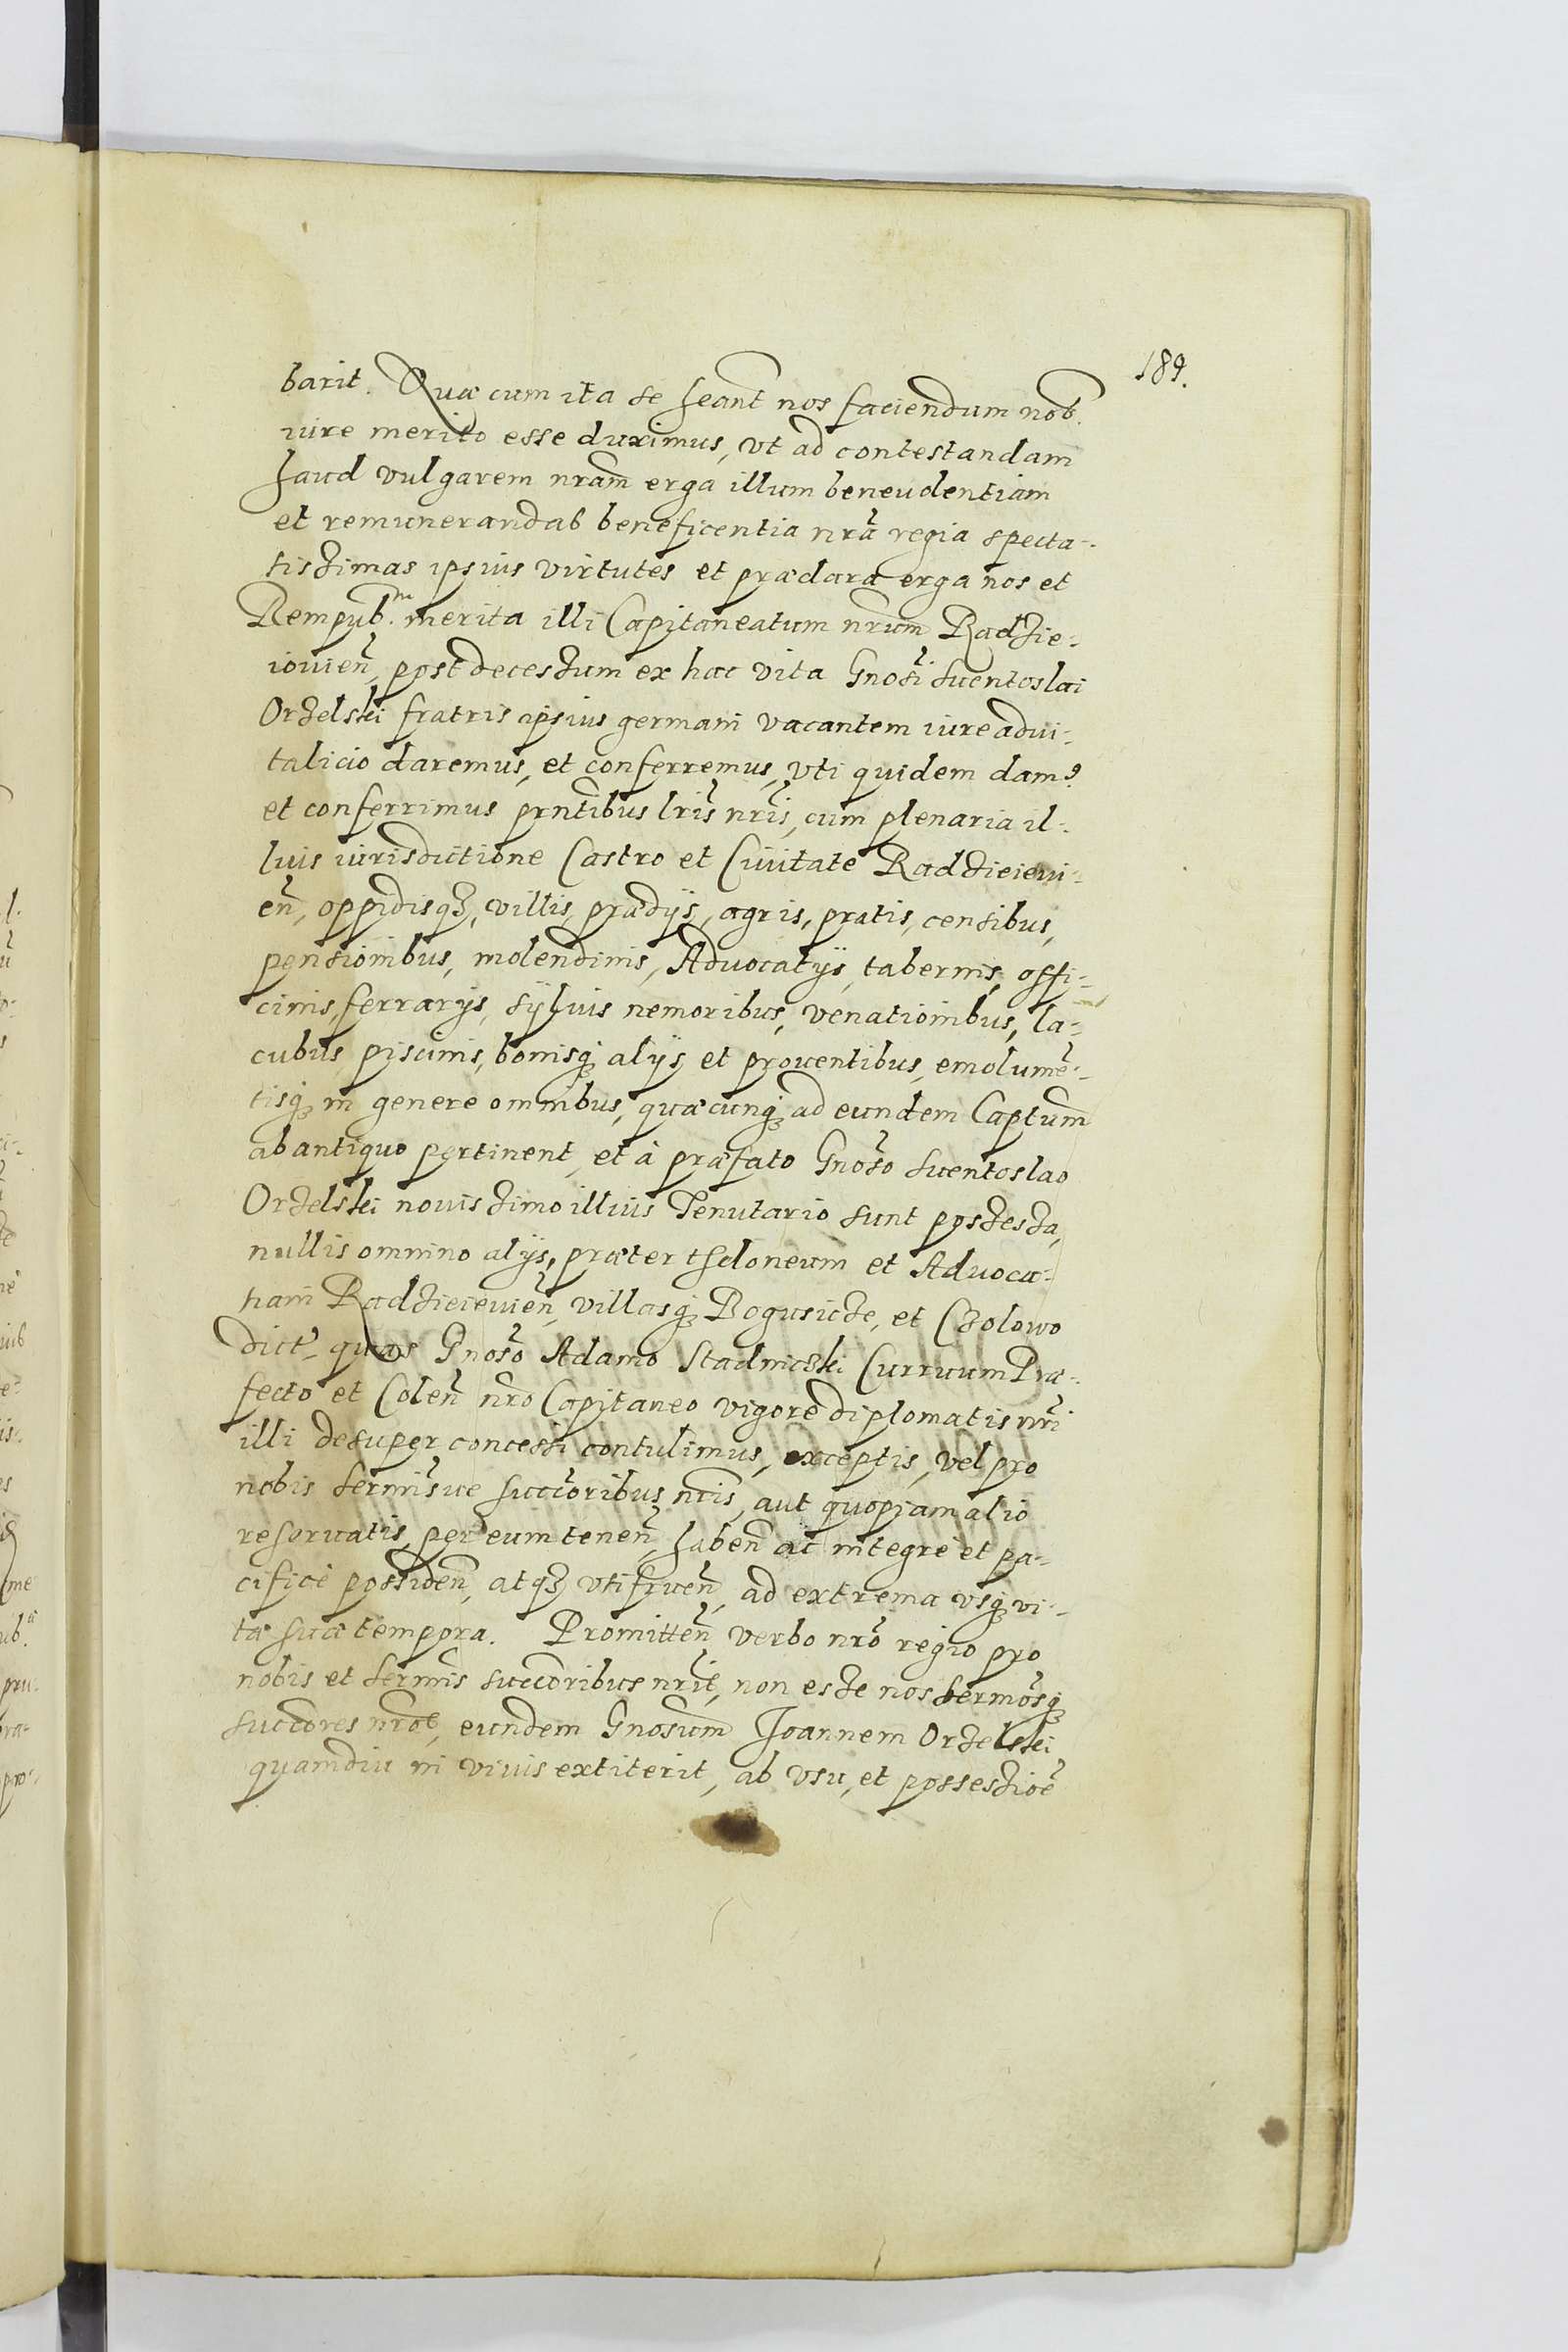 189.
barit. Quæ cum ita se heant nos faciendum nob.
iure merito esse duximus, vt ad contestandam
haud vulgarem nram erga illum beneuolentiam
et remunerandas beneficentia nra regia specta-
tissimas ipsius virtutes et præclara erga nos et
Rempub.m merita illi Capitaneatum nrum Radzie-
iouien, post decessum ex hac vita Gnosi Suentoslai
Orzelski fratris ipsius germani vacantem iure adui-
talicio daremus, et conferremus, vti quidem dam9
et conferrimus prntibus lris nris, cum plenaria il-
lius iurisdictione Castro et Ciuitate Radzieieui-
en, oppidisq3, villis, prædijs, agris, pratis, censibus,
pensionibus, molendinis, Aduocatijs, tabernis, offi-
cinis, ferrarijs, syluis nemoribus, venationibus, la-
cubus, piscinis, bonisq3 alijs et prouentibus, emolume-
tisq3 in genere omnibus, quæcunq3 ad eundem Captum
ab antiquo pertinent, et à præfato Gnoso Suentoslao
Orzelski nouissimo illius Tenutario sunt possessa,
nullis omnino alijs, præter theloneum et Aduoca-
tiam Radzieieuien, villasq3 Bogusicze, et Czolowo
dict, quas Gnoso Adamo Stadnicski Curruum Præ-
fecto et Colen nro Capitaneo vigore diplomatis nri
illi desuper concessi contulimus, exceptis, vel pro
nobis Sermisue succoribus nris, aut quopiam alio
reseruatis, per eum tenen, haben ac integrè et pa-
cificè possiden, atq3 vtifruen, ad extrema vsq3 vi-
tæ suæ tempora. Promitten verbo nro regio pro
nobis et Sermis succoribus nris, non esse nos Sermosq3
succores nros, eundem Gnosum Joannem Orzelski
quamdiu in viuis extiterit, ab vsu, et possessioe